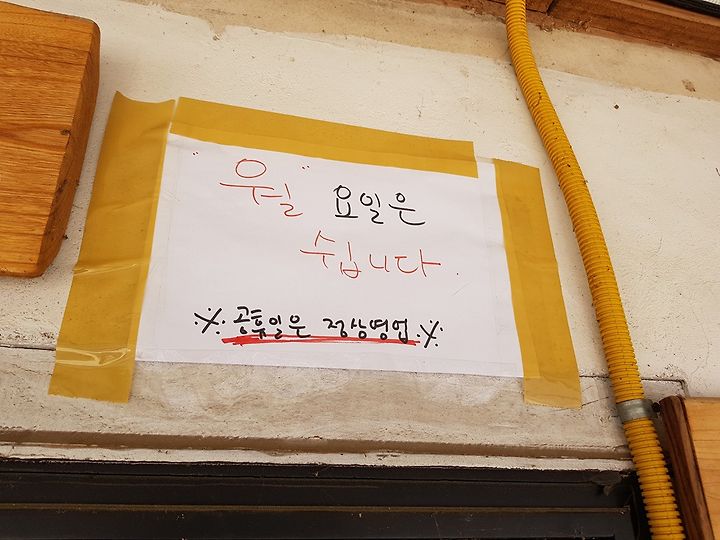 월 요일은
쉽니다.
※ 공휴일은 정상영업 ※